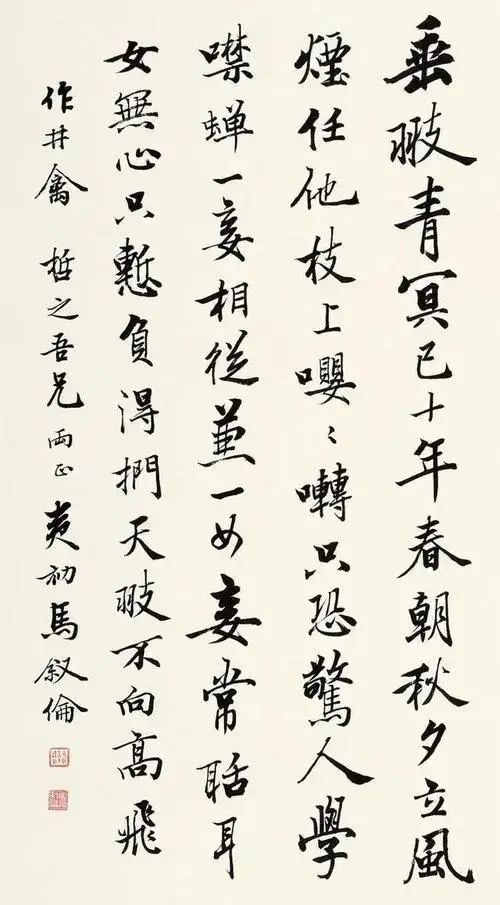 垂翄青冥已十年春朝秋夕立風
煙任他枝上嚶〻囀只恐驚人學
噤蟬一妾相從兼一女妾常聒耳
女無心只慙負得捫天翄不向高飛
作井禽 哲之吾兄兩正 夷初馬叙倫